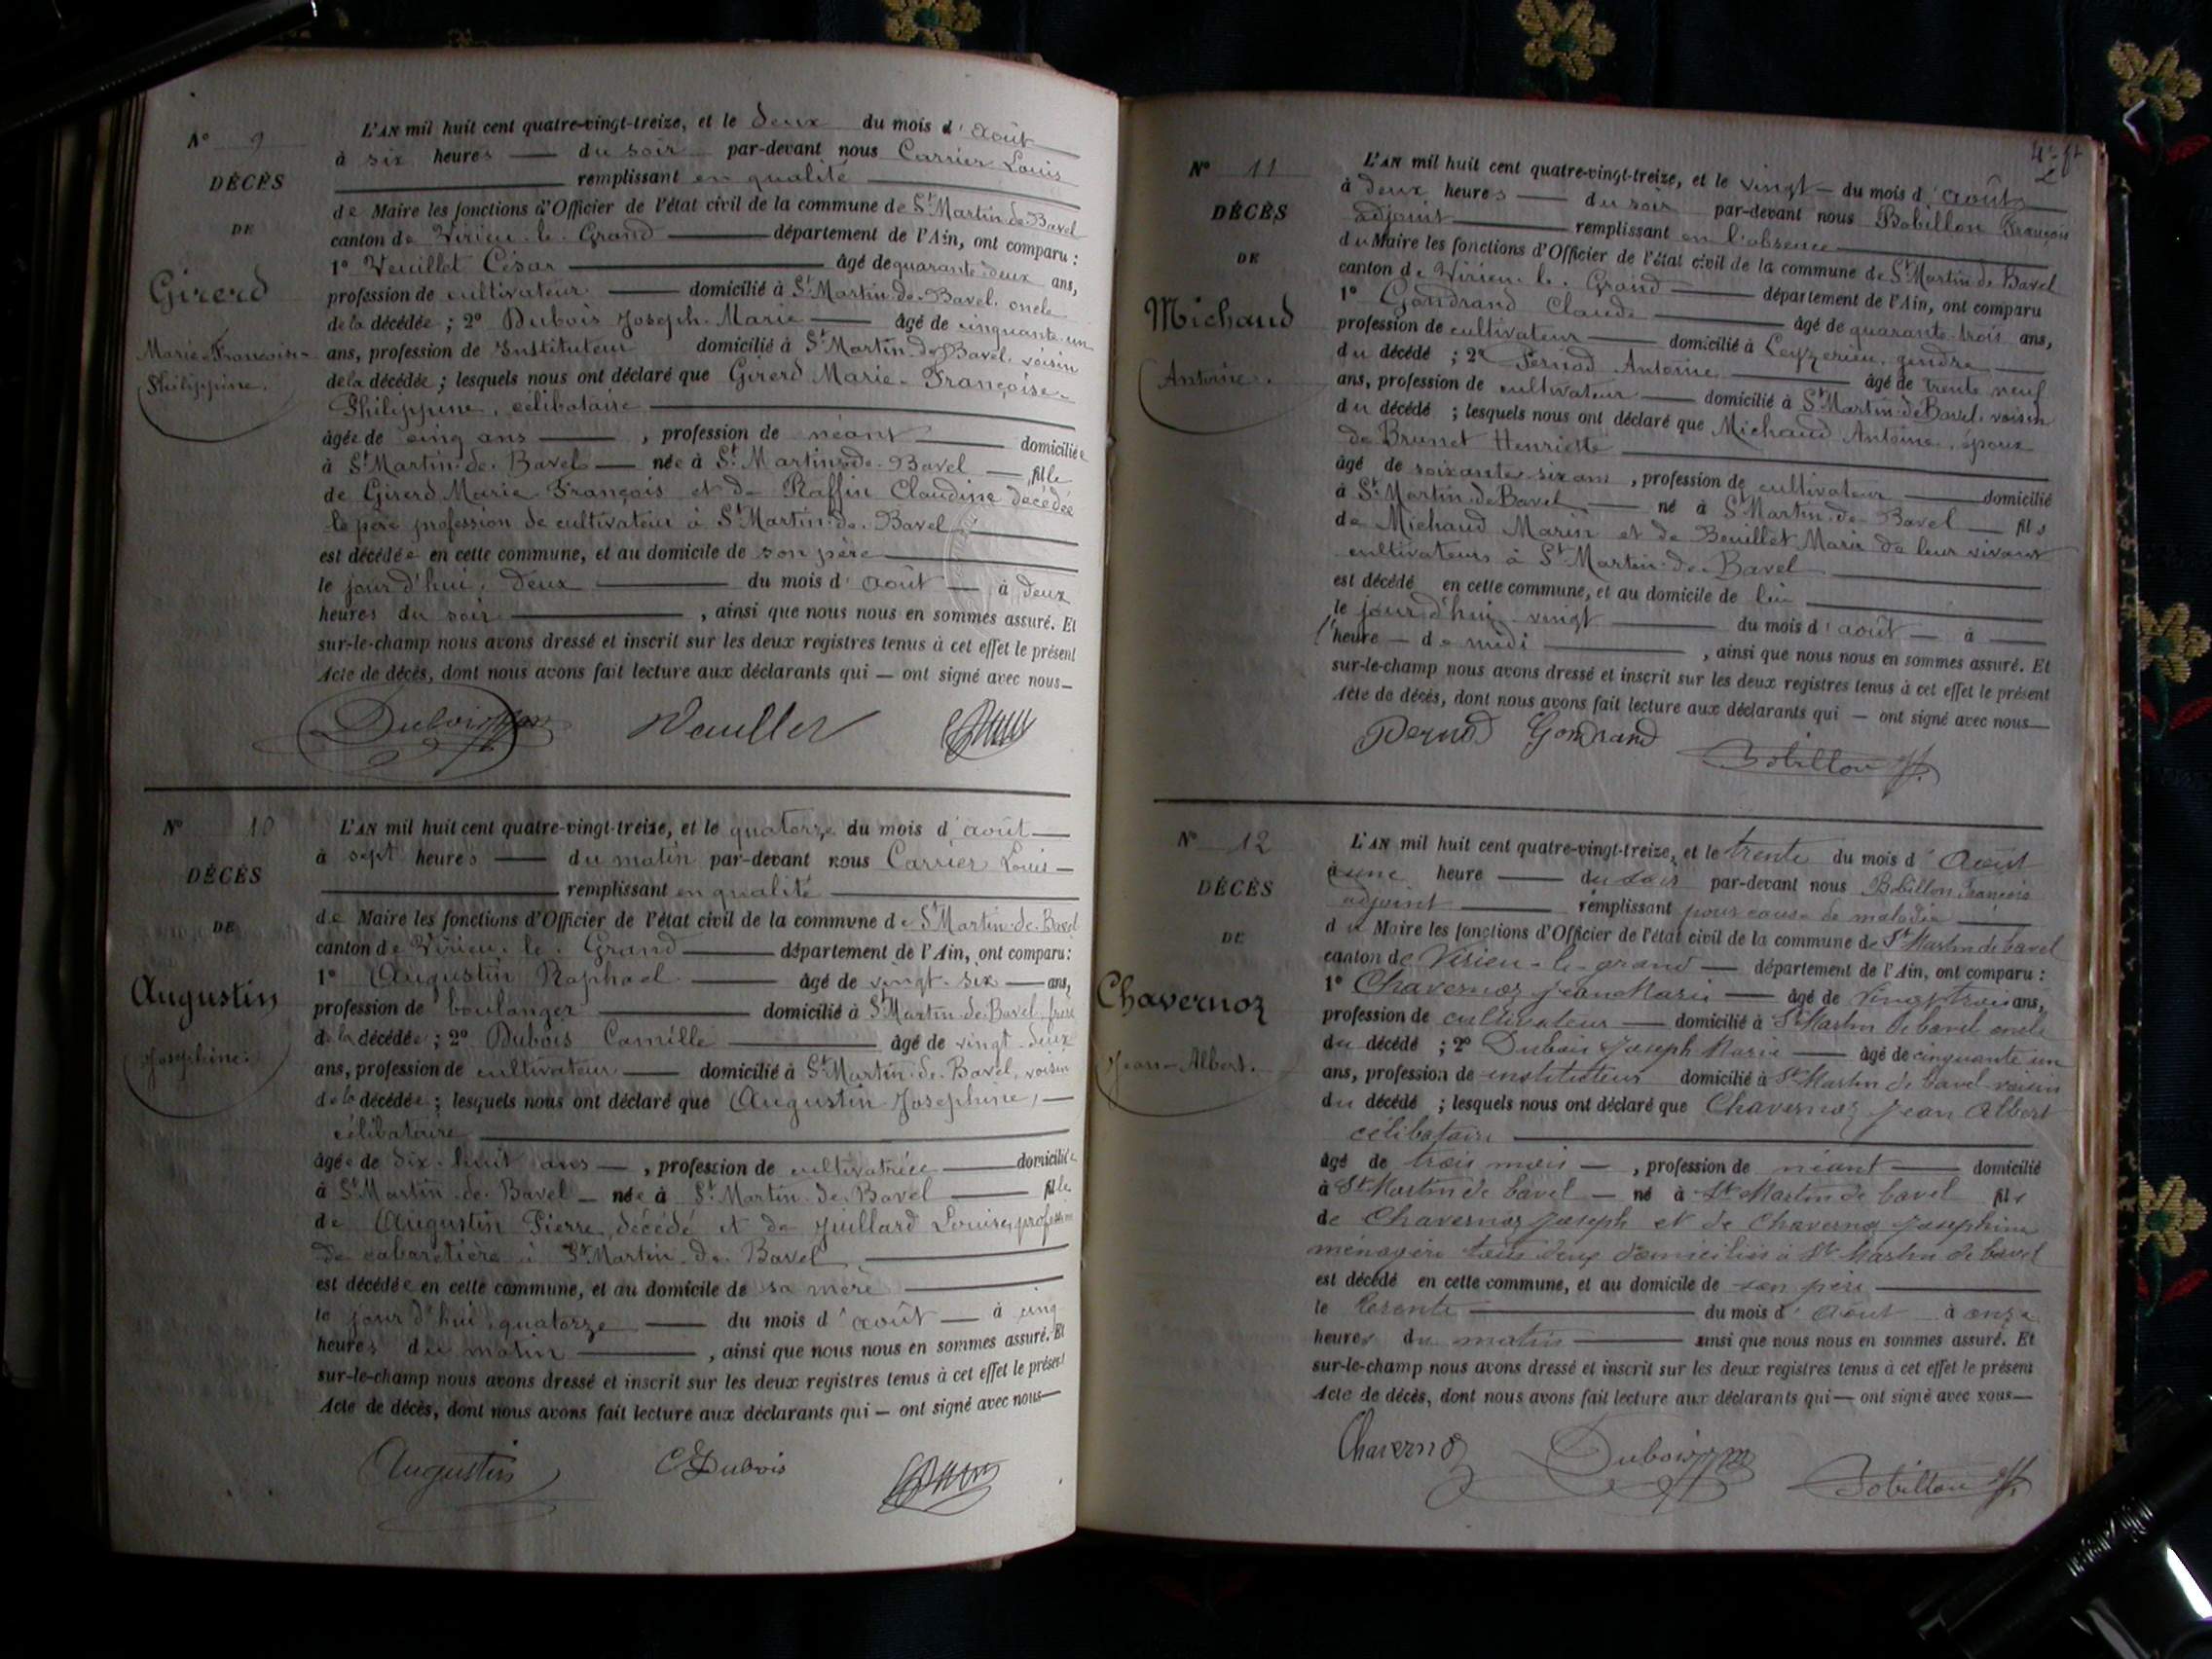 N° 9
DÉCÈS
DE
Girerd
Marie-Françoise-
Philippine.
L'AN mil huit cent quatre-vingt-treize, et le deux du mois d'août
à six heures du soir par-devant nous Carrier Louis
remplissant en qualité
de Maire les fonctions d'Officier de l'état civil de la commune de St Martin-de-Bavel
canton de Virieu-le-Grand département de l'Ain, ont comparu :
1° Veuillet César âgé de quarante-deux ans,
profession de cultivateur domicilié à St Martin-de-Bavel, oncle
de la décédée ; 2° Dubois Joseph-Marie âgé de cinquante-un
ans, profession de Instituteur domicilié à St Martin-de-Bavel, voisin
de la décédée ; lesquels nous ont déclaré que Girerd Marie-Françoise-
Philippine, célibataire
âgée de cinq ans , profession de néant domiciliée
à St Martin-de-Bavel née à St Martin-de-Bavel fille
de Girerd Marie François et de Raffin Claudine décédée
le père profession de cultivateur à St Martin-de-Bavel
est décédée en cette commune, et au domicile de son père
le jourd'hui, deux du mois d'août à deux
heures du soir , ainsi que nous nous en sommes assuré. Et
sur-le-champ nous avons dressé et inscrit sur les deux registres tenus à cet effet le présent
Acte de décès, dont nous avons fait lecture aux déclarants qui — ont signé avec nous
Dubois Veuillet
N° 10
DÉCÈS
DE
Augustin
Joséphine.
L'AN mil huit cent quatre-vingt-treize, et le quatorze du mois d'août
à sept heures du matin par-devant nous Carrier Louis
remplissant en qualité
de Maire les fonctions d'Officier de l'état civil de la commune de St Martin-de-Bavel
canton de Virieu-le-Grand département de l'Ain, ont comparu :
1° Augustin Raphael âgé de vingt-six ans,
profession de boulanger domicilié à St Martin-de-Bavel, frère
de la décédée ; 2° Dubois Camille âgé de vingt-deux
ans, profession de cultivateur domicilié à St Martin-de-Bavel, voisin
de la décédée ; lesquels nous ont déclaré que Augustin Joséphine,
célibataire
âgée de dix-huit ans , profession de cultivatrice domiciliée
à St Martin-de-Bavel née à St Martin-de-Bavel fille
de Augustin Pierre, décédé et de Juillard Louise, profession
de cabaretière à St Martin-de-Bavel
est décédée en cette commune, et au domicile de sa mère
le jourd'hui, quatorze du mois d'août à cinq
heures du matin , ainsi que nous nous en sommes assuré. Et
sur-le-champ nous avons dressé et inscrit sur les deux registres tenus à cet effet le présent
Acte de décès, dont nous avons fait lecture aux déclarants qui — ont signé avec nous
Augustin C Dubois
N° 11
DÉCÈS
DE
Michaud
Antoine.
L'AN mil huit cent quatre-vingt-treize, et le vingt du mois d'août
à deux heures du soir par-devant nous Bobillon François
adjoint remplissant en l'absence
du Maire les fonctions d'Officier de l'état civil de la commune de St Martin de Bavel
canton de Virieu-le-Grand département de l'Ain, ont comparu
1° Gondrand Claude âgé de quarante-trois ans,
profession de cultivateur domicilié à Ceyzerieu, gendre
du décédé ; 2° Pernod Antoine âgé de trente neuf
ans, profession de cultivateur domicilié à St Martin-de-Bavel, voisin
du décédé ; lesquels nous ont déclaré que Michaud Antoine, époux
de Brunet Henriette
âgé de soixante six ans , profession de cultivateur domicilié
à St Martin-de-Bavel né à St Martin-de-Bavel fils
de Michaud Marin et de Beuillet Marie de leur vivant
cultivateurs à St Martin-de-Bavel
est décédé en cette commune, et au domicile de lui
le jourd'hui vingt du mois d'août à
l'heure de midi , ainsi que nous nous en sommes assuré. Et
sur-le-champ nous avons dressé et inscrit sur les deux registres tenus à cet effet le présent
Acte de décès, dont nous avons fait lecture aux déclarants qui — ont signé avec nous
Pernod Gondrand Bobillon ff.
N° 12
DÉCÈS
DE
Chavernoz
Jean-Albert.
L'AN mil huit cent quatre-vingt-treize, et le trente du mois d'Août
à une heure du soir par-devant nous Bobillon François
adjoint remplissant pour cause de maladie
du Maire les fonctions d'Officier de l'état civil de la commune de St Martin de bavel
canton de Virieu-le-grand département de l'Ain, ont comparu :
1° Chavernoz Jean Marie âgé de vingt trois ans,
profession de cultivateur domicilié à St Martin de bavel oncle
du décédé ; 2° Dubois Joseph Marie âgé de cinquante un
ans, profession de instituteur domicilié à St Martin de bavel voisin
du décédé ; lesquels nous ont déclaré que Chavernoz Jean Albert
célibataire
âgé de trois mois , profession de néant domicilié
à St Martin de bavel né à St Martin de bavel fils
de Chavernoz Joseph et de Chavernoz Joséphine
ménagère tous deux domiciliés à St Martin de bavel
est décédé en cette commune, et au domicile de son père
le trente du mois d'Août à onze
heures du matin ainsi que nous nous en sommes assuré. Et
sur-le-champ nous avons dressé et inscrit sur les deux registres tenus à cet effet le présent
Acte de décès, dont nous avons fait lecture aux déclarants qui — ont signé avec nous
Chavernoz Dubois Bobillon ff.